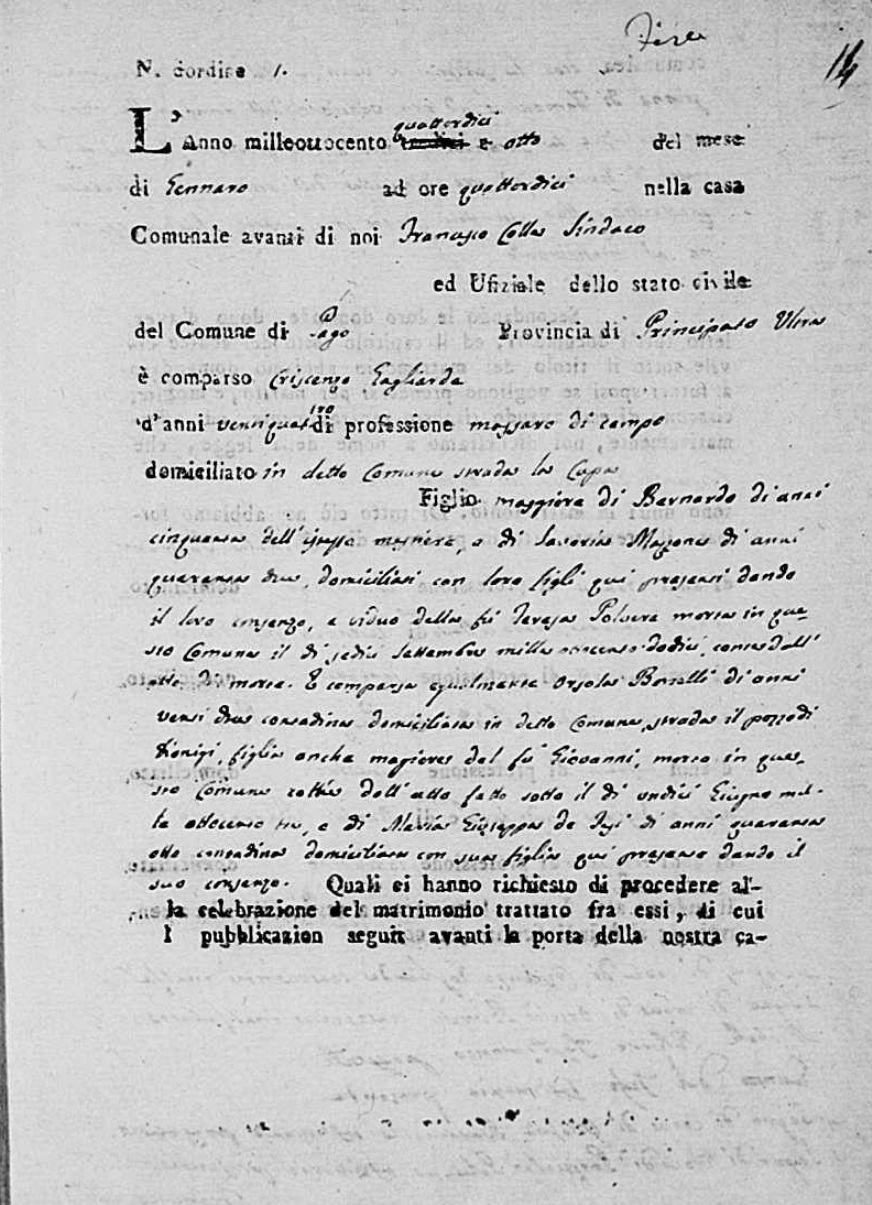 14
N. dordine 1.
L'Anno milleottocento quattordici e otto del mese
di Gennaro ad ore quattordici nella casa
Comunale avanti di noi Francesco Colle Sindaco
ed Ufiziale dello stato civile
del Comune di Pago Provincia di Principato Ultra
è comparso Criscenzo Tagliarda
d'anni ventiquattro di professione massaro di campo
domiciliato in detto Comune strada la Cupa
Figlio maggiore di Bernardo di anni
cinquanta dell'istessa mestiere, e di Saveria Mazzone di anni
quaranta due, domiciliati con loro figli qui presenti dando
il loro consenzo, e viduo della fu Teresa Polvere morta in que-
sto Comune il dì sedici Settembre mille ottocento dodici, come dall'
atto di morte. E comparsa egualmente Orsola Borrelli di anni
venti due contadina domiciliata in detto Comune, strada il pozzo di
Dionigi, figlia anche magiore del fu Giovanni, morto in que-
sto Comune dell'atto fatto sotto il dì undici Giugno mil-
le ottocento tre, e di Maria Giuseppa de Jesi di anni quaranta
otto contadina domiciliata con sua figlia qui presente dando il
suo consenzo. Quali ci hanno richiesto di procedere al-
la celebrazione del matrimonio trattato fra essi, di cui
l pubblicazion seguit avanti la porta della nostra ca-